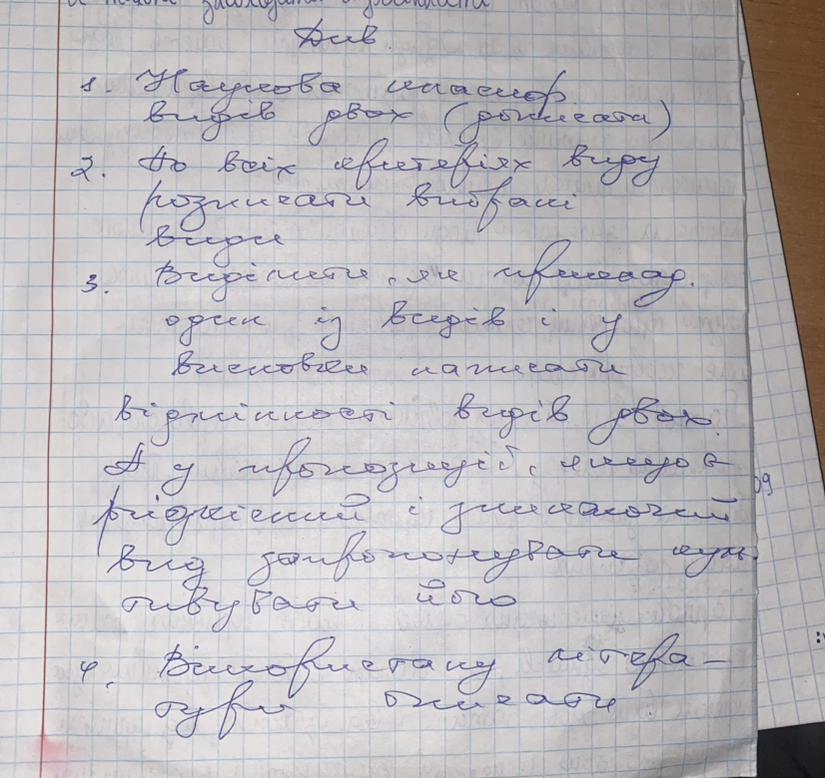 Див.
1. Наукова класиф.
видів двох (дописати)
2. По всіх критеріях виду
розписати вибрані
види
3. Виділити, як приклад.
один із видів і у
висновки написати
відмінності видів двох.
А у пропозиції, якщо є
рідкісний і зникаючий
вид запропонувати куль
тивувати його
4. Використану літера-
тури описати
09